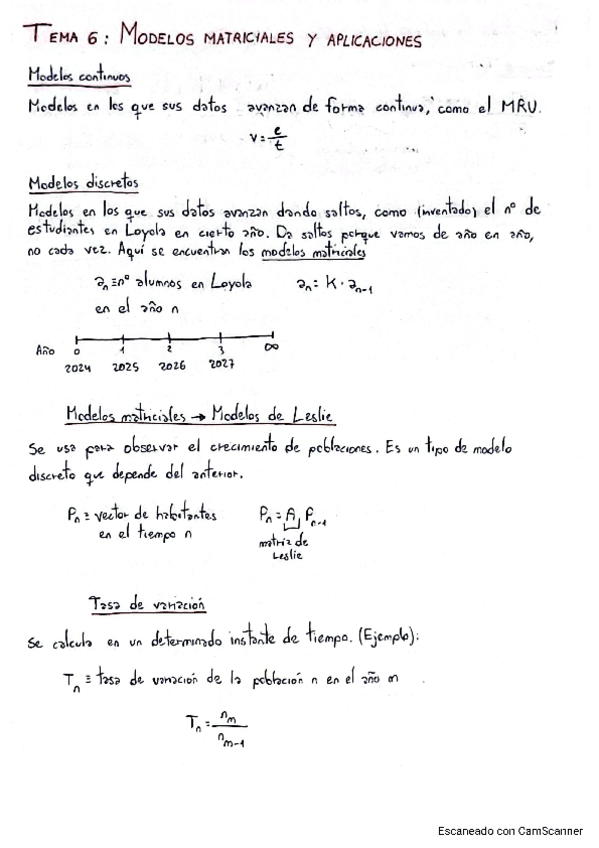 TEMA 6: MODELOS MATRICIALES Y APLICACIONES
Modelos continuos
Modelos en los que sus datos avanzan de forma continua, como el MRU.
v = e/t
Modelos discretos
Modelos en los que sus datos avanzan dando saltos, como (inventado) el nº de
estudiantes en Loyola en cierto año. Da saltos porque vamos de año en año,
no cada vez. Aquí se encuentran los modelos matriciales
aₙ ≡ nº alumnos en Loyola aₙ = K · aₙ₋₁
en el año n
Año 0 1 2 3 ∞
2024 2025 2026 2027
Modelos matriciales → Modelos de Leslie
Se usa para observar el crecimiento de poblaciones. Es un tipo de modelo
discreto que depende del anterior.
Pₙ ≡ vector de habitantes Pₙ = A · Pₙ₋₁
en el tiempo n matriz de
Leslie
Tasa de variación
Se calcula en un determinado instante de tiempo. (Ejemplo):
Tₙ ≡ tasa de variación de la población n en el año m
Tₙ = nₘ / nₘ₋₁
Escaneado con CamScanner